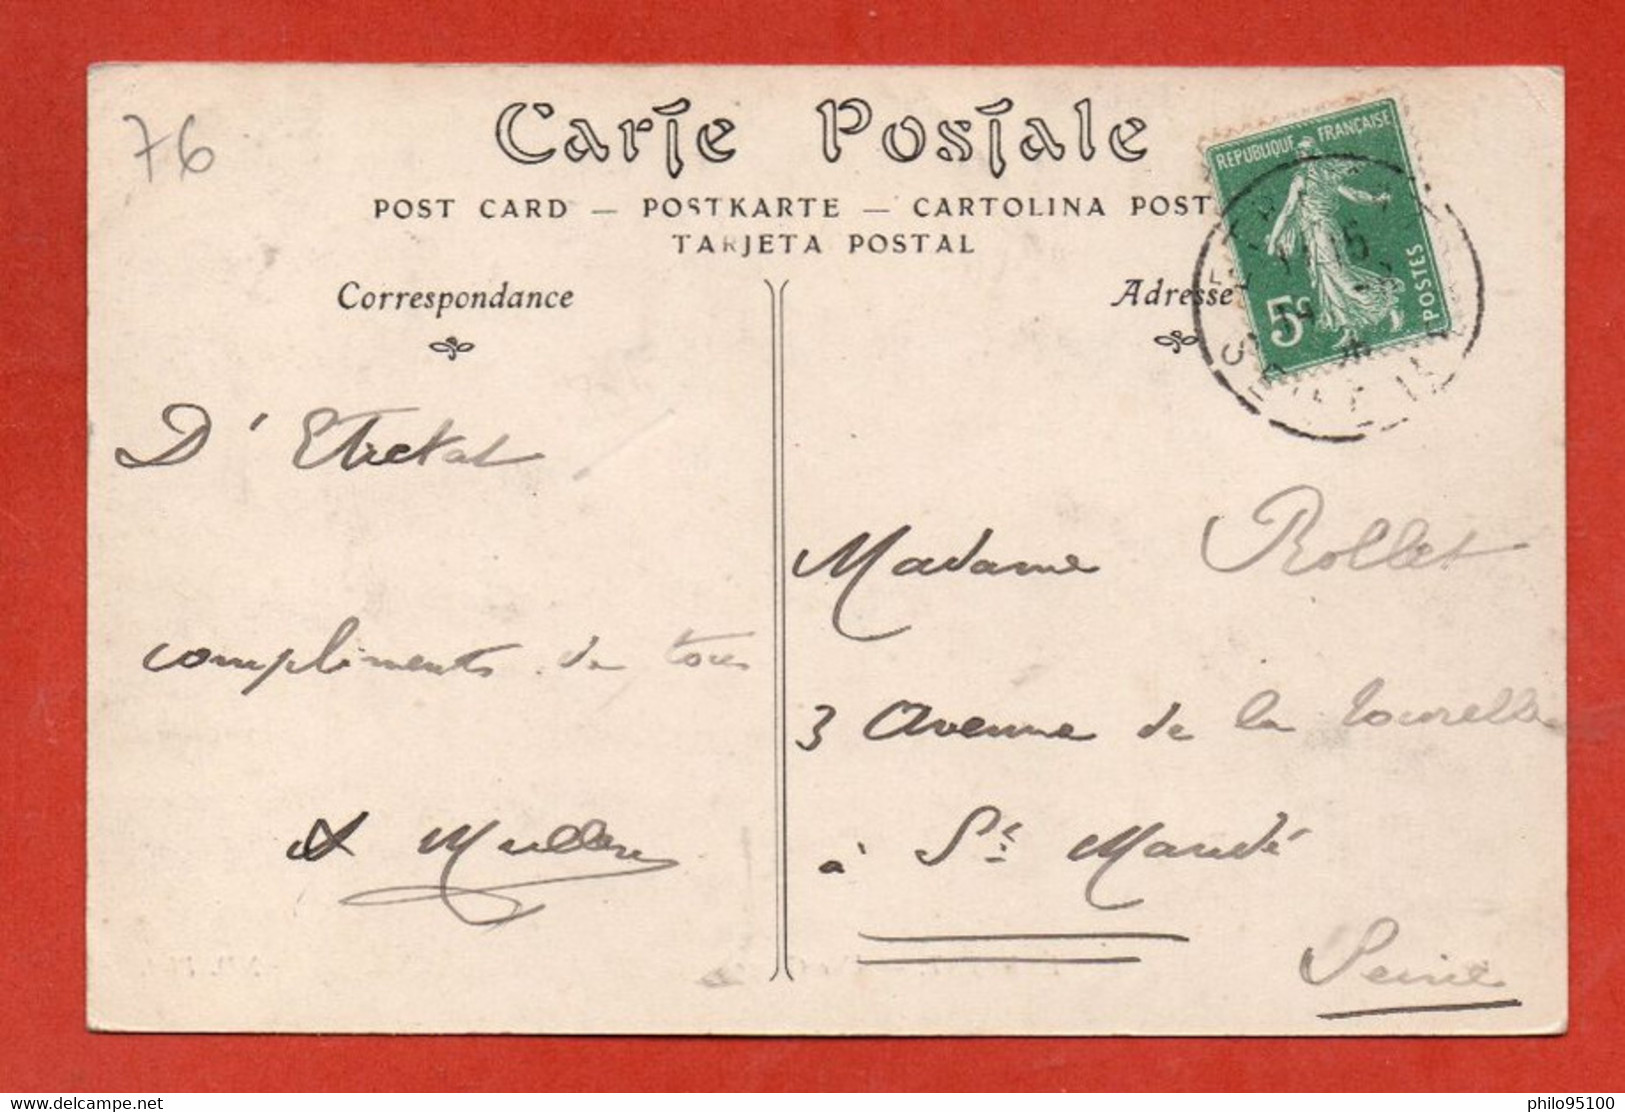 76
Carte Postale
POST CARD — POSTKARTE — CARTOLINA POST
TARJETA POSTAL
Correspondance
Adresse
REPUBLIQUE FRANÇAISE
5c
POSTES
D'Etretat
compliments de tous
Muller
Madame Rollet
3 Avenue de la Tourelle
à St Mandé
Seine
delcampe.net
philo95100